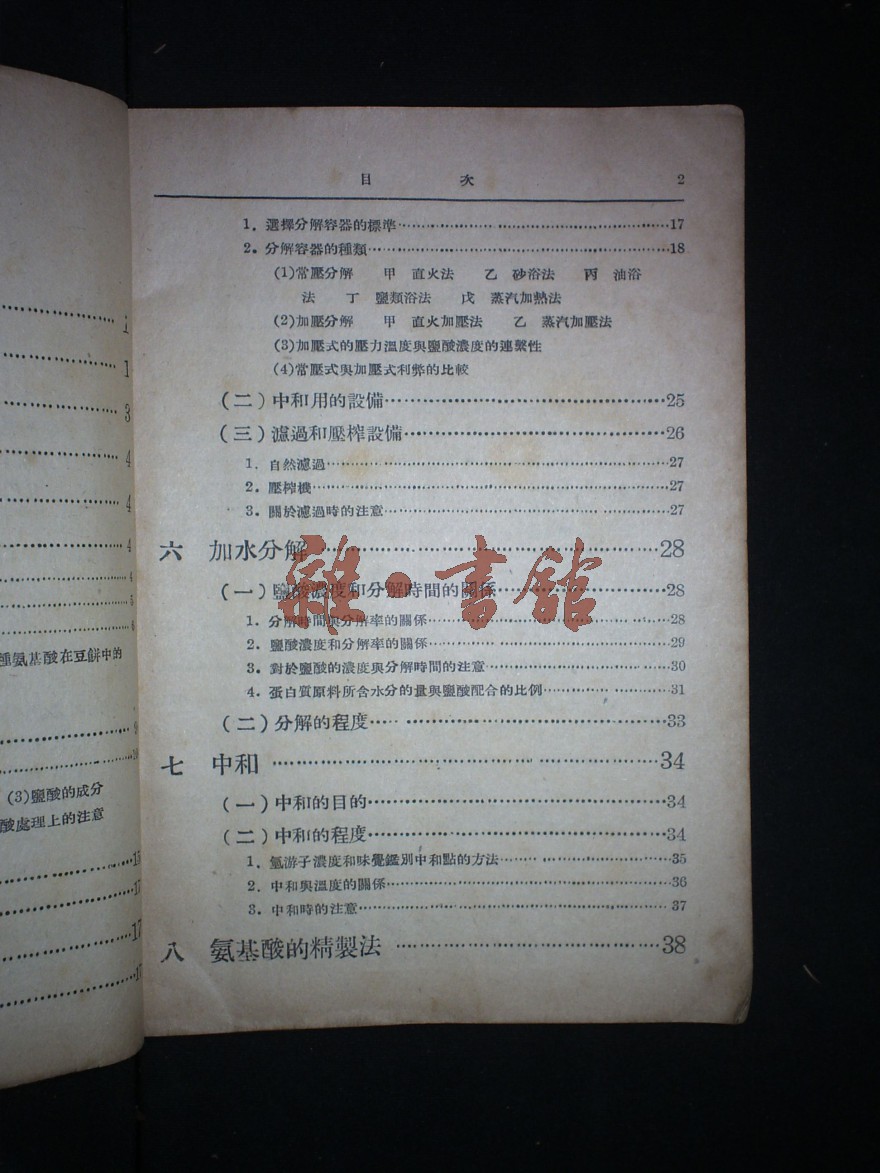 1
1
3
4
4
4
4
5
6
種氨基酸在豆餅中的
9
10
(3)鹽酸的成分
酸處理上的注意
15
17
17
17
目 次 2
1. 選擇分解容器的標準……17
2. 分解容器的種類……18
(1)常壓分解 甲 直火法 乙 砂浴法 丙 油浴
法 丁 鹽類浴法 戊 蒸汽加熱法
(2)加壓分解 甲 直火加壓法 乙 蒸汽加壓法
(3)加壓式的壓力溫度與鹽酸濃度的連繫性
(4)常壓式與加壓式利弊的比較
(二)中和用的設備……25
(三)濾過和壓榨設備……26
1. 自然濾過……27
2. 壓榨機……27
3. 關於濾過時的注意……27
六 加水分解……28
雜·書館
(一)鹽酸濃度和分解時間的關係……28
1. 分解時間與分解率的關係……28
2. 鹽酸濃度和分解率的關係……29
3. 對於鹽酸的濃度與分解時間的注意……30
4. 蛋白質原料所含水分的量與鹽酸配合的比例……31
(二)分解的程度……33
七 中和……34
(一)中和的目的……34
(二)中和的程度……34
1. 氫游子濃度和味覺鑑別中和點的方法……35
2. 中和與溫度的關係……36
3. 中和時的注意……37
八 氨基酸的精製法……38